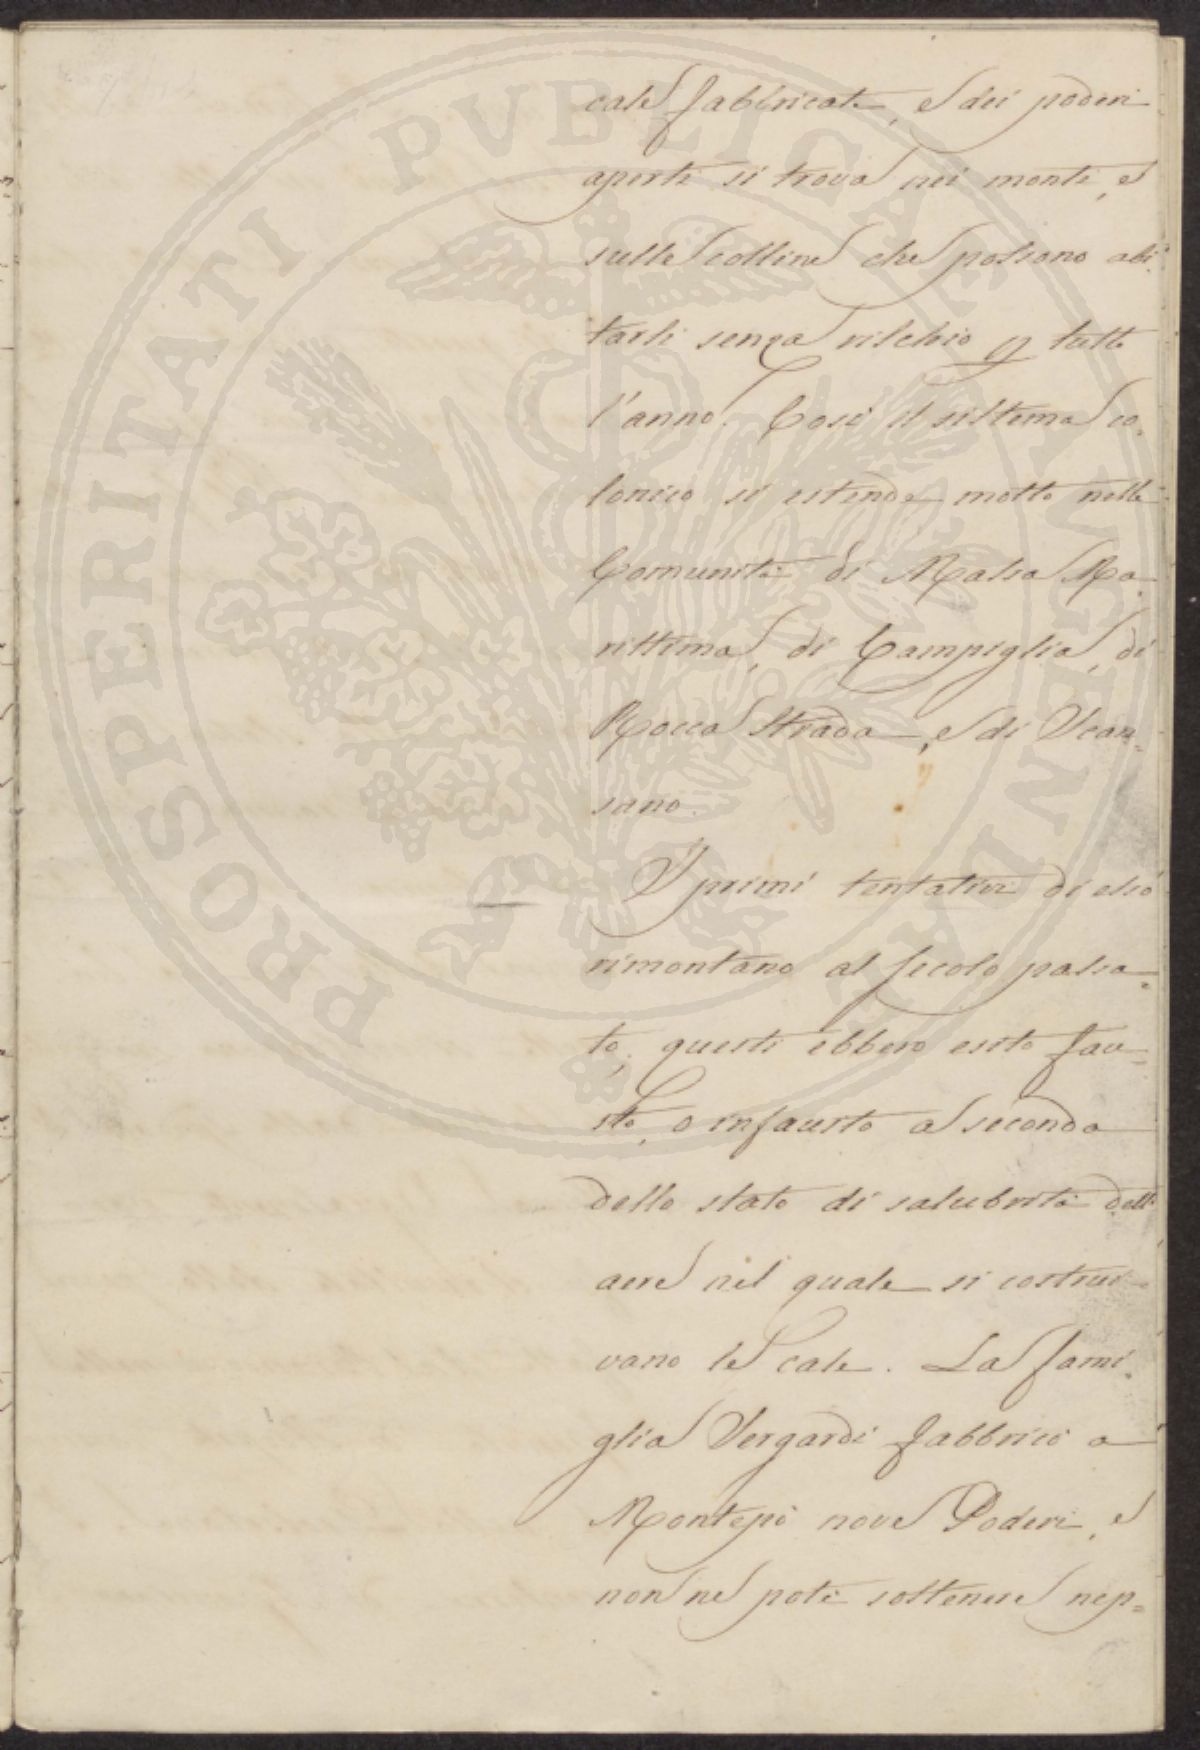 case fabbricate, e dei poderi
aperti si trova nei monti, e
sulle colline che possono abi-
tarsi senza rischio p tutto
l'anno. Così il sistema co-
lonico si estende molto nelle
Comunità di Massa Ma-
rittima, di Campiglia, di
Rocca Strada, e di Scan=
sano.
I primi tentativi di esso
rimontano al secolo passa=
to; questi ebbero esito fau=
sto, o infausto a seconda
dello stato di salubrità dell'
aere nel quale si costrui-
vano le case. La fami-
glia Sergardi fabbricò a
Montepò nove Poderi, e
non ne potè sostenere nep=
PROSPERITATI PVBLICAE AVGENDAE